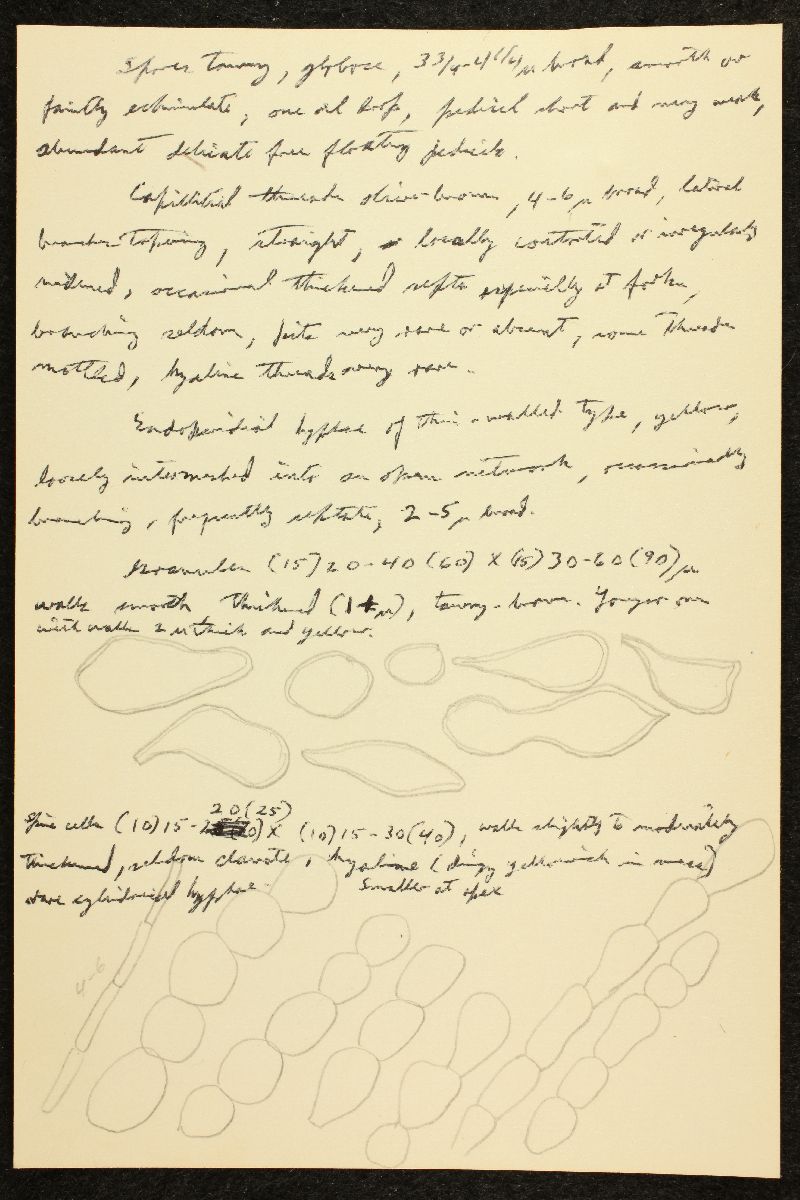 Spores tawny, globose, 3 3/4-4 1/4 µ broad, smooth or
faintly echinulate, one oil drop, pedicel short and very weak,
abundant delicate free floating pedicels.
Capillitial threads olive-brown, 4-6 µ broad, lateral
branches tapering, straight, or locally contorted or irregularly
widened, occasional thickened septa especially at forks,
branching seldom, pits very rare or absent, some threads
mottled, hyaline threads very rare.
Endoperidial hyphae of thin-walled type, yellow,
loosely intermeshed into an open network, occasionally
branching, frequently septate, 2-5 µ broad.
Granules (15) 20-40 (60) X (15) 30-60 (90) µ
walls smooth thickened (1+µ), tawny-brown. Younger ones
with walls 2 µ thick and yellow.
20 (25)
Spine cells (10) 15- X (10) 15-30 (40), walls slightly to moderately
thickened, seldom clavate, hyaline (dingy yellowish in mass)
rare cylindrical hyphae. Smaller at apex
4-6